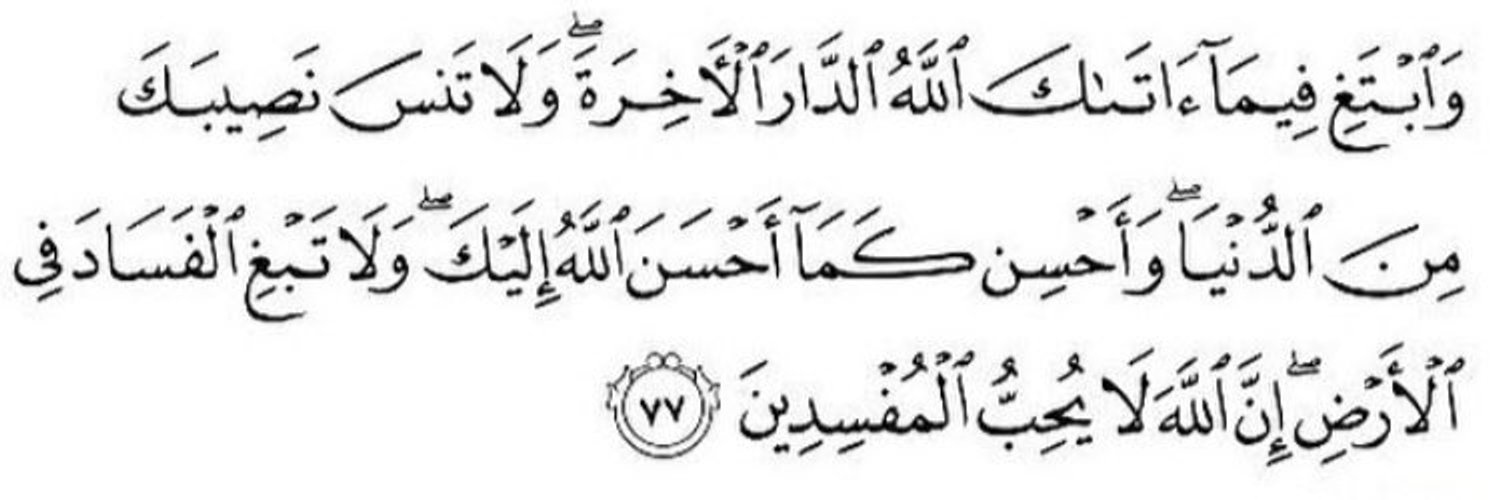 وَٱبْتَغِ فِيمَآ ءَاتَىٰكَ ٱللَّهُ ٱلدَّارَ ٱلْأَخِرَةَ ۖ وَلَا تَنسَ نَصِيبَكَ
مِنَ ٱلدُّنْيَا ۖ وَأَحْسِن كَمَآ أَحْسَنَ ٱللَّهُ إِلَيْكَ ۖ وَلَا تَبْغِ ٱلْفَسَادَ فِى
ٱلْأَرْضِ ۖ إِنَّ ٱللَّهَ لَا يُحِبُّ ٱلْمُفْسِدِينَ ٧٧